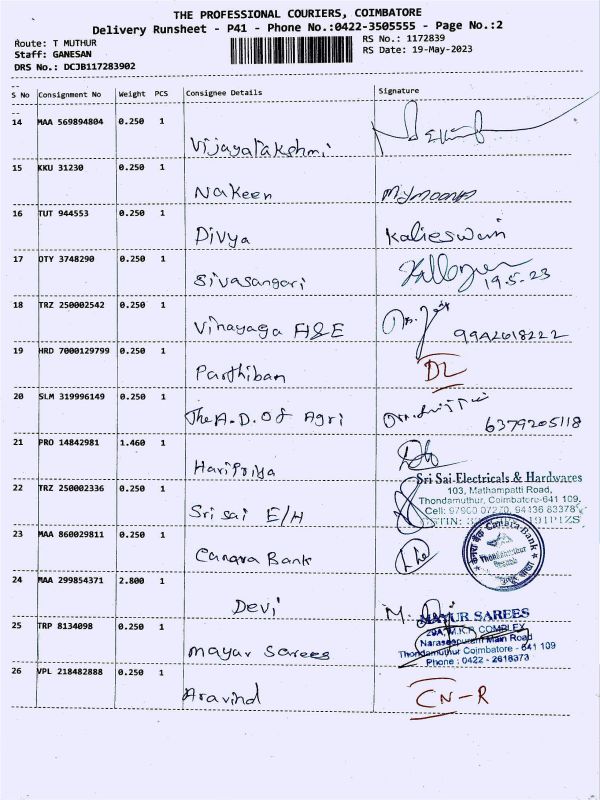 THE PROFESSIONAL COURIERS, COIMBATORE
Delivery Runsheet - P41 - Phone No.:0422-3505555 - Page No.:2
Route: T MUTHUR
RS No.: 1172839
Staff: GANESAN
RS Date: 19-May-2023
DRS No.: DCJB117283902
S No Consignment No Weight PCS Consignee Details Signature
14 MAA 569894804 0.250 1
Vijayalakshmi
15 KKU 31230 0.250 1
Nakeen Mymoona
16 TUT 944553 0.250 1
Divya Kalieswari
17 OTY 3748290 0.250 1
Sivasangari 19.5-23
18 TRZ 250002542 0.250 1
Vinayaga A&E 9942618222
19 HRD 7000129799 0.250 1
Parthiban DL
20 SLM 319996149 0.250 1
The A.D. Of Agri 6379205118
21 PRO 14842981 1.460 1
Haripriya
Sri Sai Electricals & Hardwares
22 TRZ 250002336 0.250 1
103, Mathampatti Road,
Thondamuthur, Coimbatore-641 109.
Sri sai E/H
Cell: 97900 07270, 94436 83378
23 MAA 860029811 0.250 1
Canara Bank
Canara Bank
Thondamuthur
Branch
24 MAA 299854371 2.800 1
Devi M.
25 TRP 8134098 0.250 1
MAYUR SAREES
29A, M.K.P. COMPLEX
Naraseepuram Main Road
Thondamuthur Coimbatore - 641 109
Phone : 0422 - 2618373
mayur sarees
26 VPL 218482888 0.250 1
Aravind CN-R